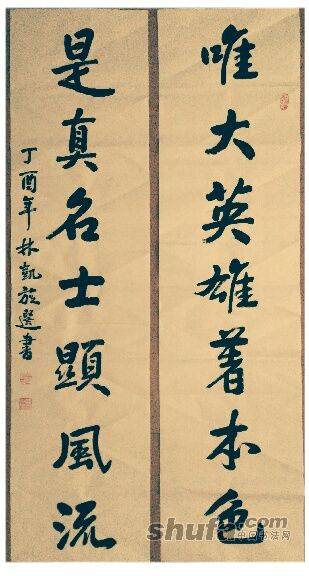 唯大英雄著本色
是真名士顯風流
丁酉年林凱旋選書
shufa.com
中国书法网